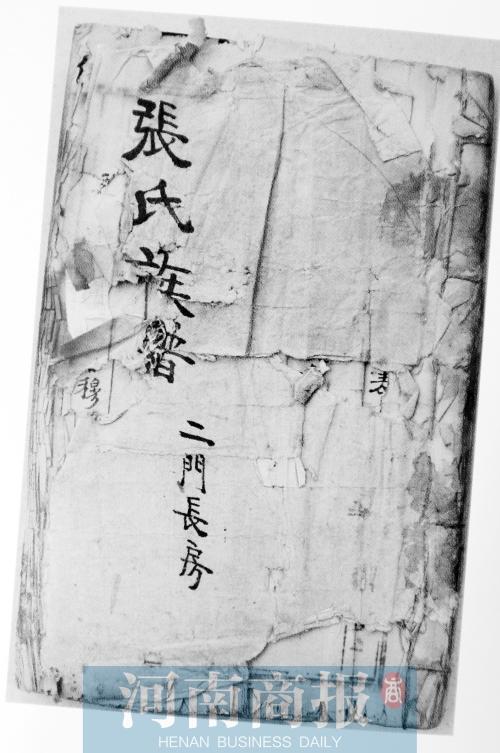 張氏族譜
二門長房
穆
河南商报
HENAN BUSINESS DAILY